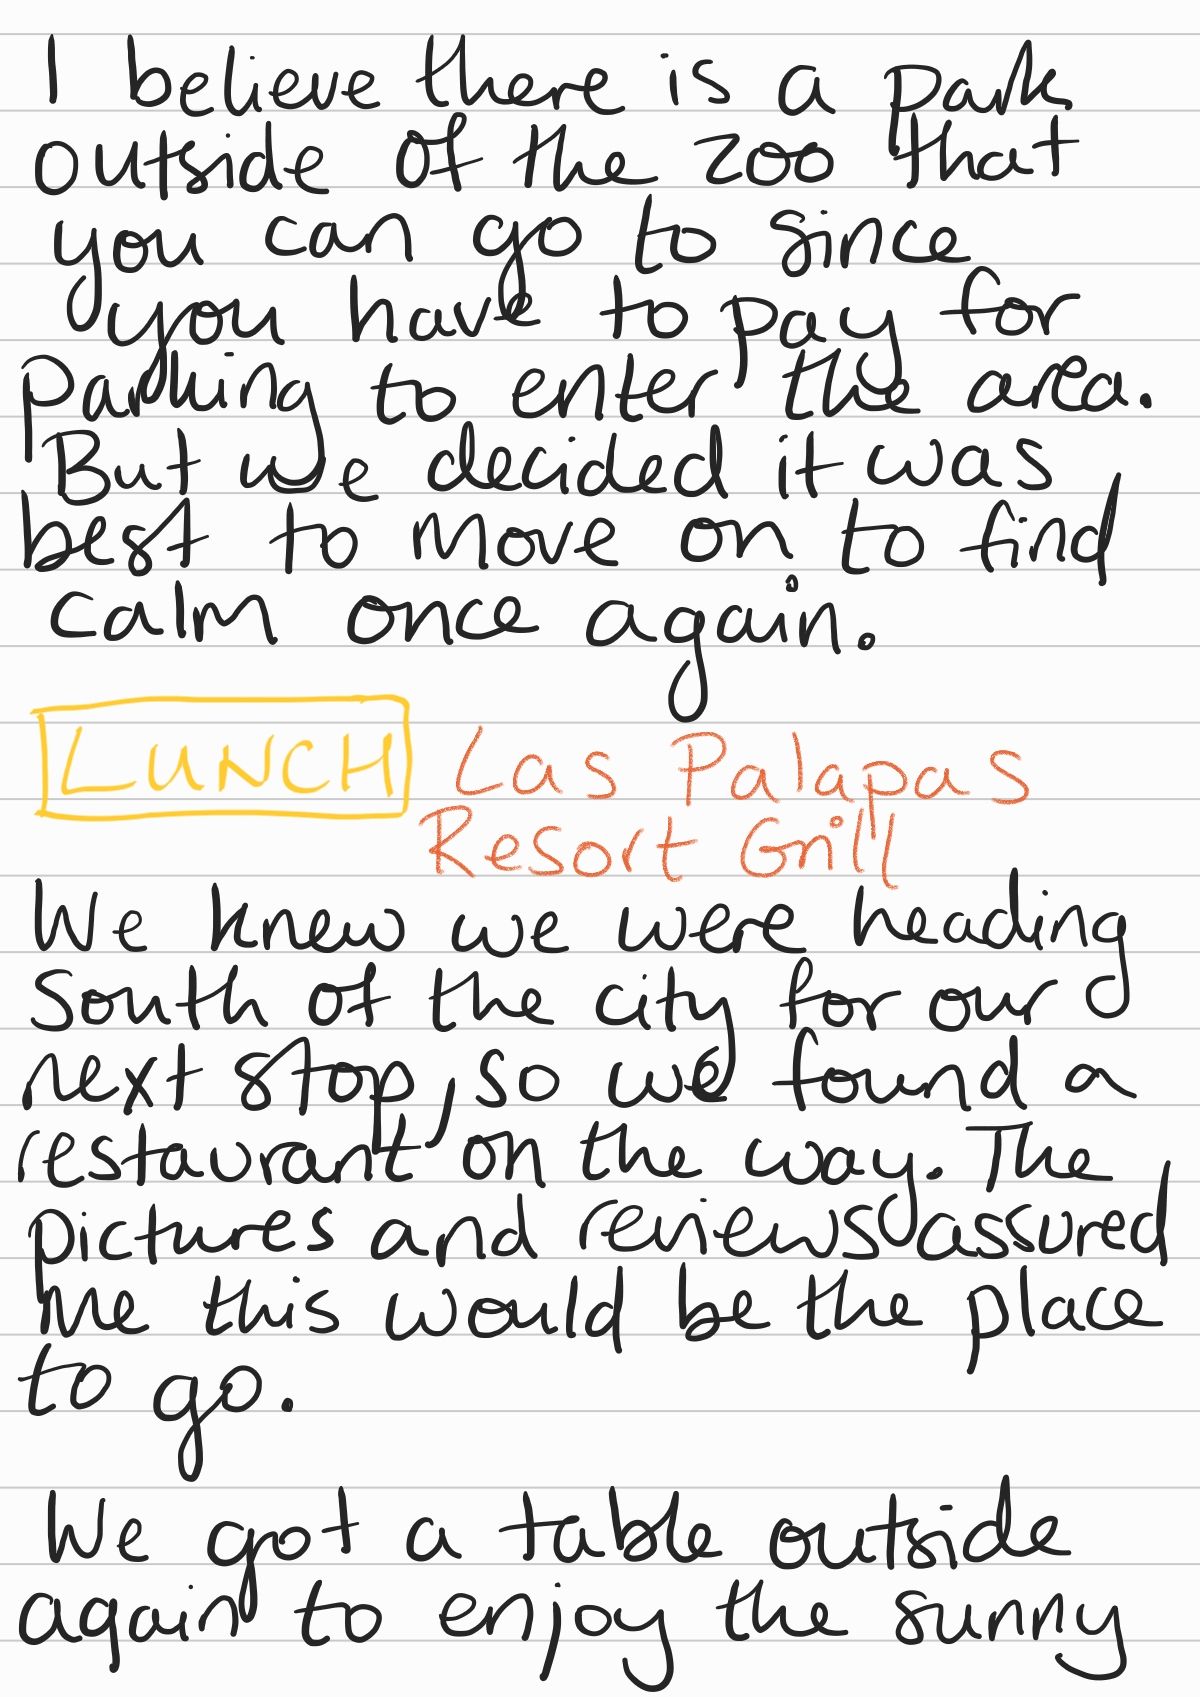 I believe there is a park
outside of the zoo that
you can go to since
you have to pay for
parking to enter the area.
But we decided it was
best to move on to find
calm once again.
LUNCH Las Palapas
Resort Grill
We knew we were heading
South of the city for our
next stop, so we found a
restaurant on the way. The
pictures and reviews assured
me this would be the place
to go.
We got a table outside
again to enjoy the sunny